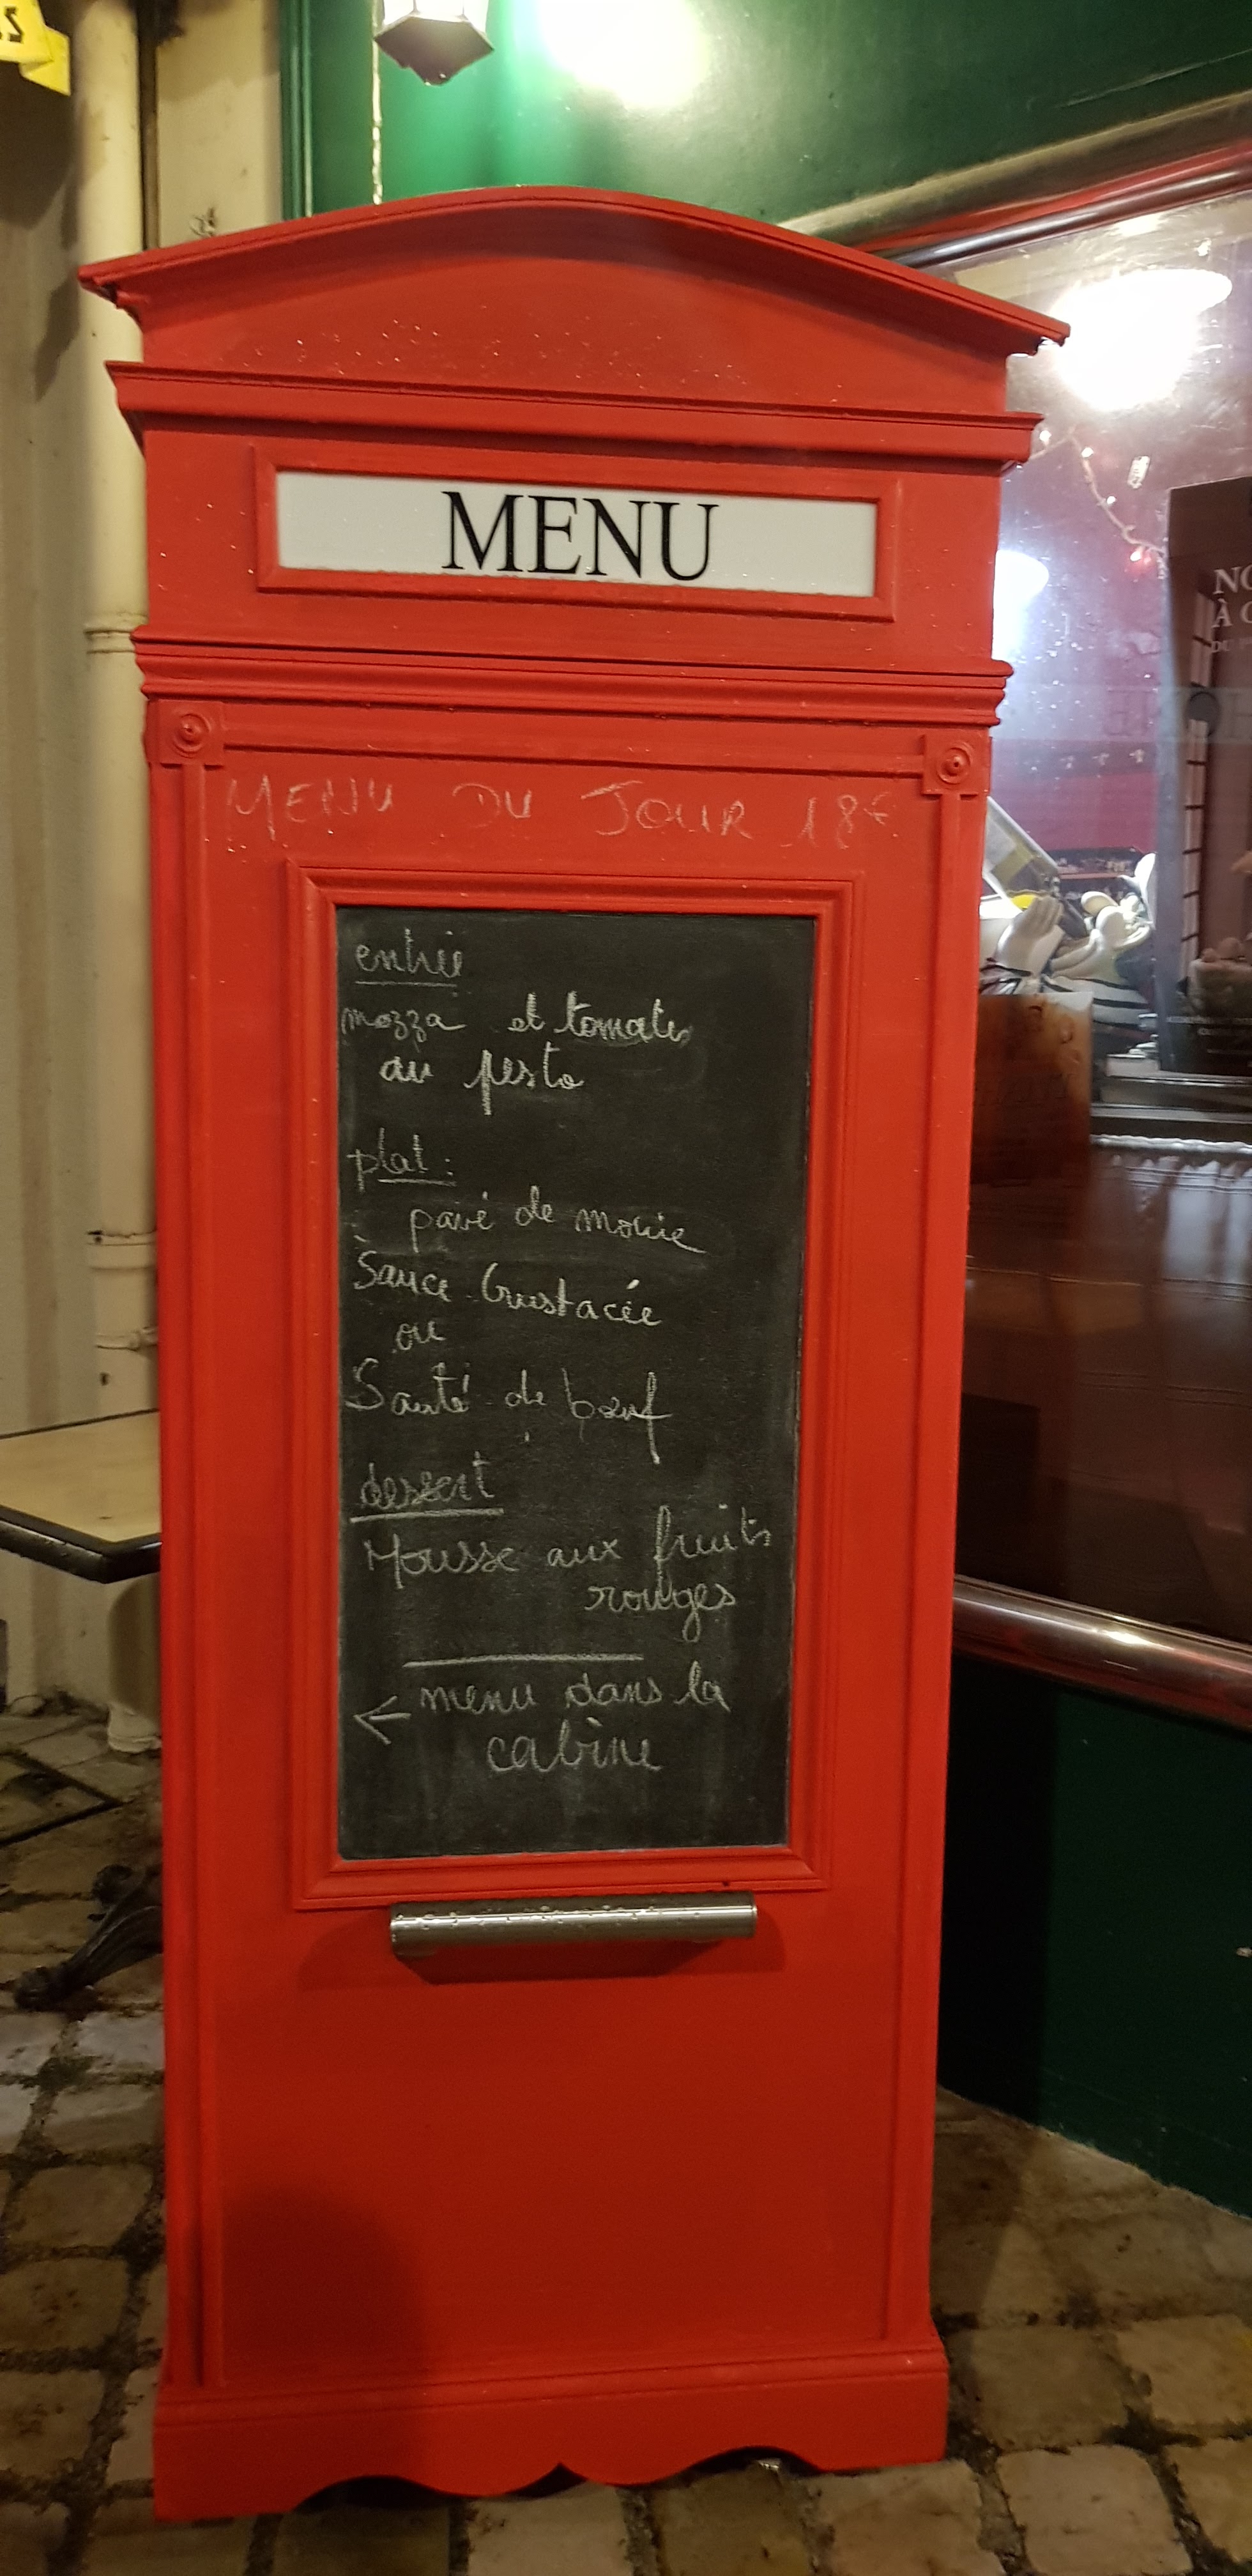 MENU
MENU DU JOUR 18€
entrée
mozza et tomates
au pesto
plat :
pavé de morue
Sauce Crustacée
ou
Sauté de bœuf
dessert
Mousse aux fruits
rouges
← menu dans la
cabine
NO
À C
DU